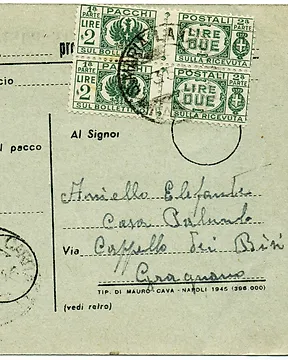 1ª PARTE PACCHI POSTALI 2ª PARTE
LIRE 2 LIRE DUE
SUL BOLLETTINO SULLA RICEVUTA
1ª PARTE PACCHI POSTALI 2ª PARTE
LIRE 2 LIRE DUE
SUL BOLLETTINO SULLA RICEVUTA
pr
cio
Al Signor
l pacco
Aniello Elefante
Casa
Via Cappella dei Bisi
Gragnano
TIP. DI MAURO CAVA - NAPOLI 1945 (396 000)
(vedi retro)